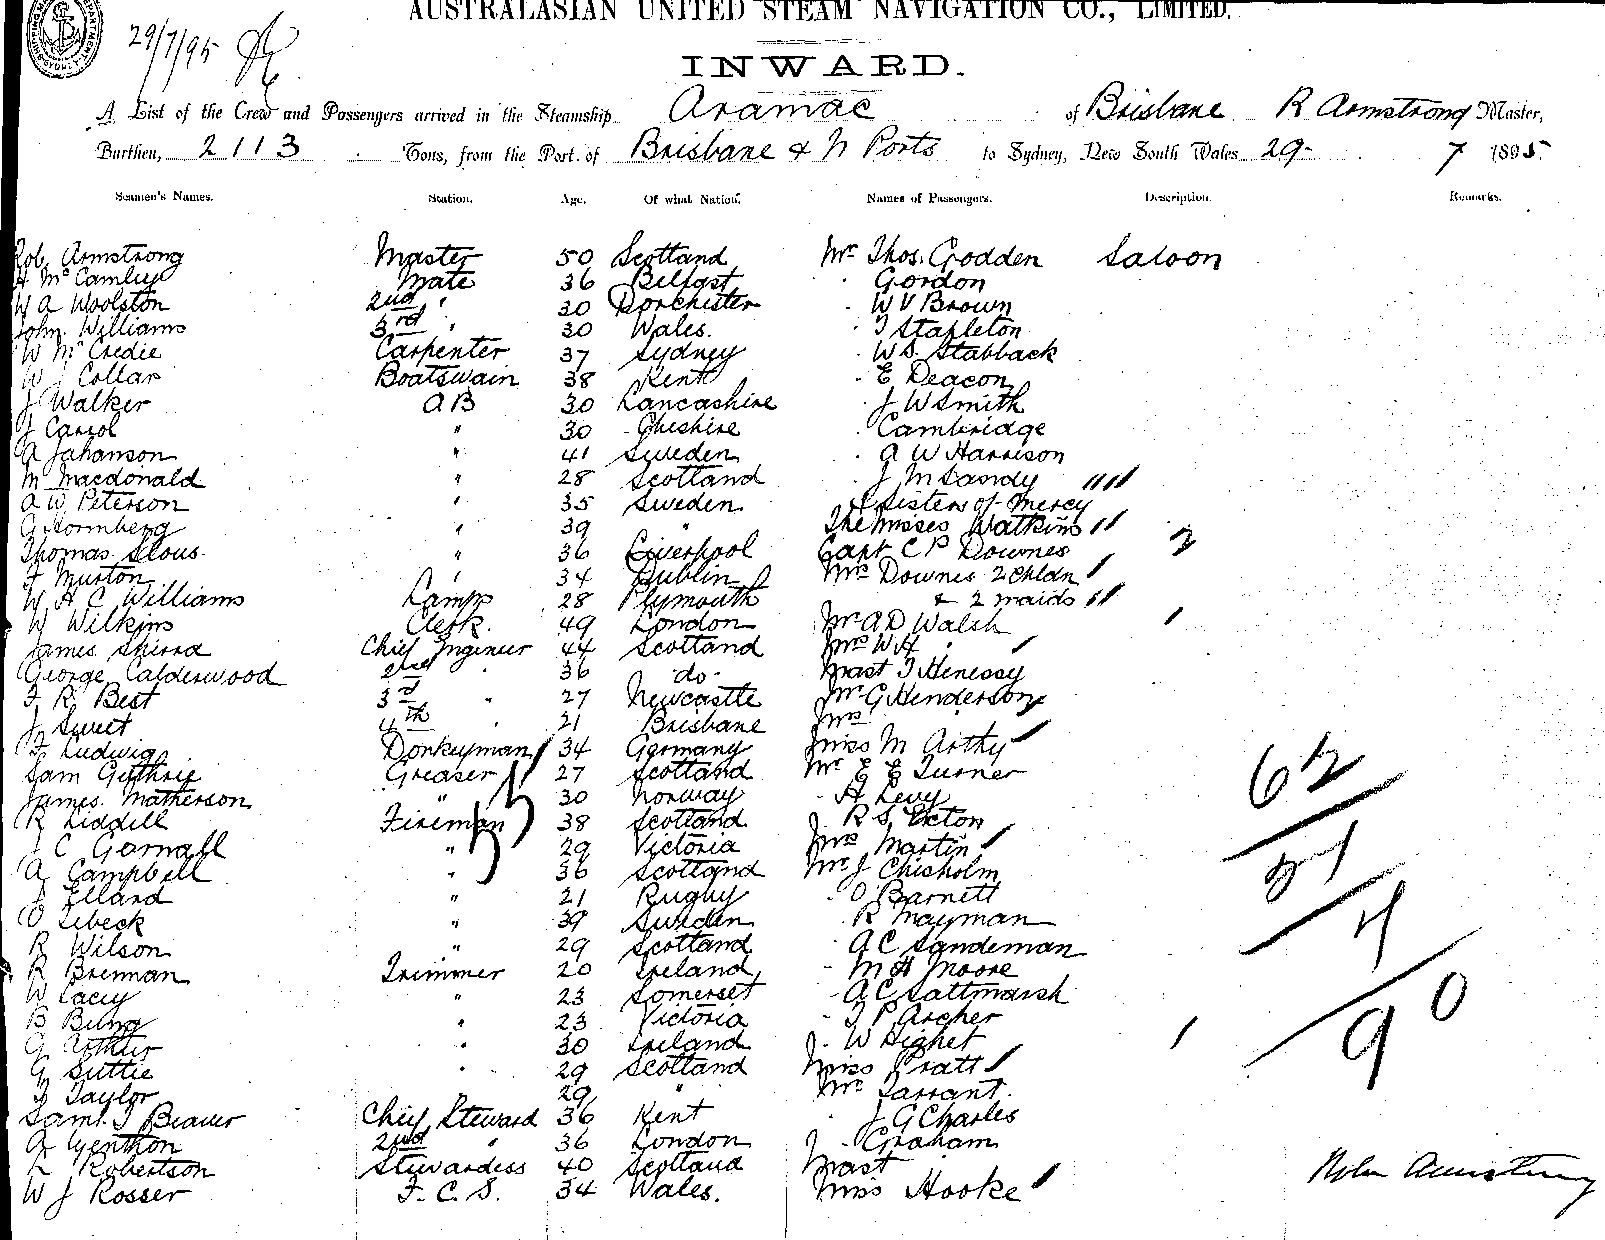 AUSTRALASIAN UNITED STEAM NAVIGATION CO., LIMITED.
29/7/95
INWARD.
A List of the Crew and Passengers arrived in the Steamship Aramac of Brisbane R Armstrong Master,
Burthen, 2113 Tons, from the Port of Brisbane & N Ports to Sydney, New South Wales 29 - 7 1895
Seamen's Names. Station. Age. Of what Nation. Names of Passengers. Description. Remarks.
Rob. Armstrong Master 50 Scotland Mr Thos. Godden Saloon
H McCamley Mate 36 Belfast Gordon
W A Woolston 2nd " 30 Dorchester W V Brown
John Williams 3rd " 30 Wales. T Stapleton
W McCredie Carpenter 37 Sydney W S. Stabback
W J Collar Boatswain 38 Kent E Deacon
J Walker AB 30 Lancashire J W Smith
J Carrol " 30 Cheshire Cambridge
A Johanson " 41 Sweden A W Harrison
M Macdonald " 28 Scotland J M Sandy
A W Peterson " 35 Sweden 4 Sisters of Mercy
G " 39 " The Misses Watkins
Thomas Slous " 36 Liverpool Capt C P Downes 2
F Murton " 34 Dublin Mrs Downes 2 chldn
W H C Williams Lamps 28 Plymouth & 2 maids
W Wilkins Clerk. 49 London Mr A D Walsh
James Shirra Chief Engineer 44 Scotland Mrs W H "
George Calderwood 2nd 36 do. Mast T Henessy
F. R. Best 3rd " 27 Newcastle Mr G Henderson
J Sweet 4th 21 Brisbane Mrs "
F Ludwig Donkeyman 34 Germany Miss M Arthy
Sam Guthrie Greaser 27 Scotland Mr E E Turner
James Matherson " 30 Norway H Levy
R Liddell Fireman 38 Scotland R S, Exton
C Garnall " 29 Victoria Mrs Martin
A Campbell " 36 Scotland Mr J Chisholm
J Elland " 21 Rugby O Barnett
O Libeck " 39 Sweden R Mayman
R Wilson " 29 Scotland A C Sandeman
R Brennan Trimmer 20 Ireland M H Moore
W Lacey " 23 Somerset A C Saltmarsh
B Bung " 23 Victoria T P Archer
G Arthur " 30 Ireland J. W Highet
G Suttie " 29 Scotland Miss Pratt
T Taylor 29 " Mr Tarrant.
Saml. T Beaver Chief Steward 36 Kent J G Charles
G Genthon 2nd " 36 London J Graham
L Robertson Stewardess 40 Scotland Mast "
W J Rosser F. C. S. 34 Wales. Miss Hooke
62
24
4
90
Robt Armstrong